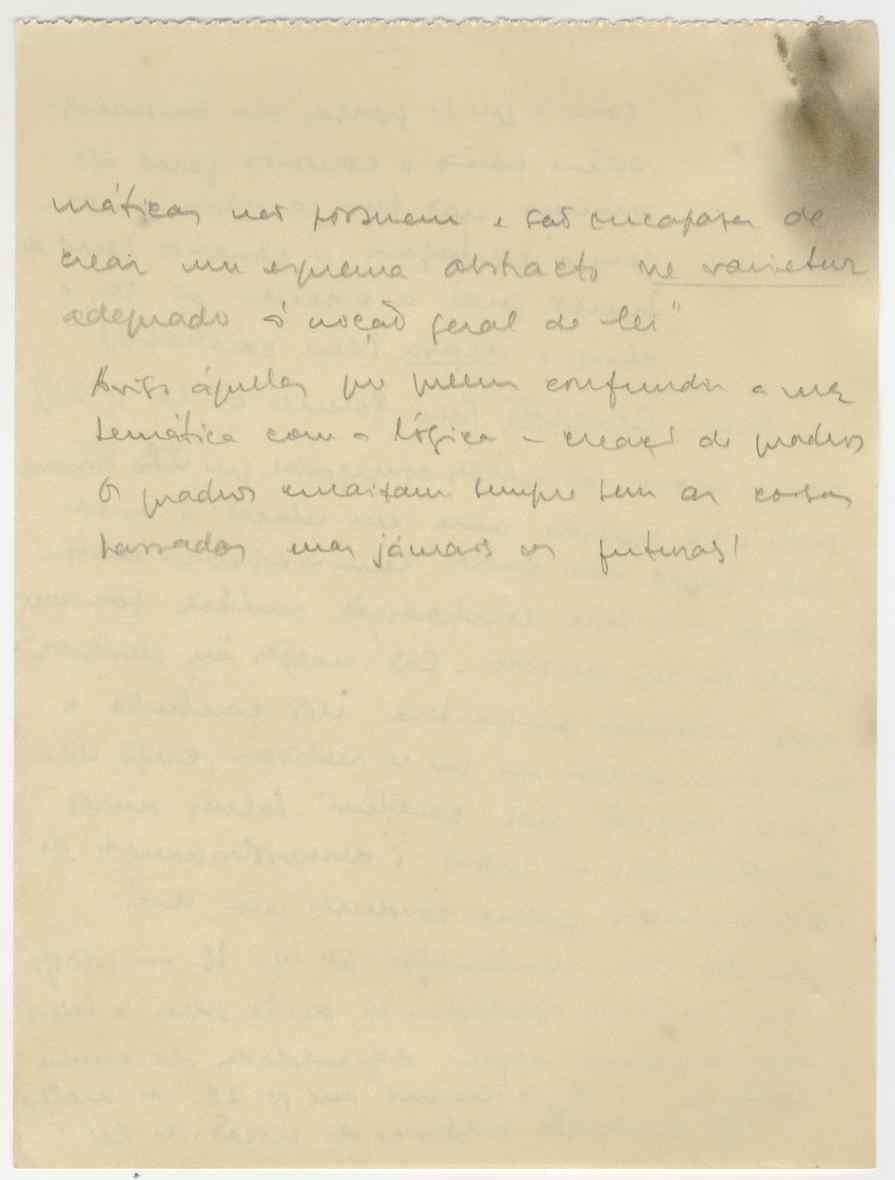 máticas não possuem e são incapazes de
crear um esquema abstracto ne varietur
adequado á noção geral de lei"
Aviso áqueles que querem confundir a ma
temática com a lógica – creaçã de quadros
Os quadros encaixam sempre bem as coisas
passadas mas jámais as futuras!